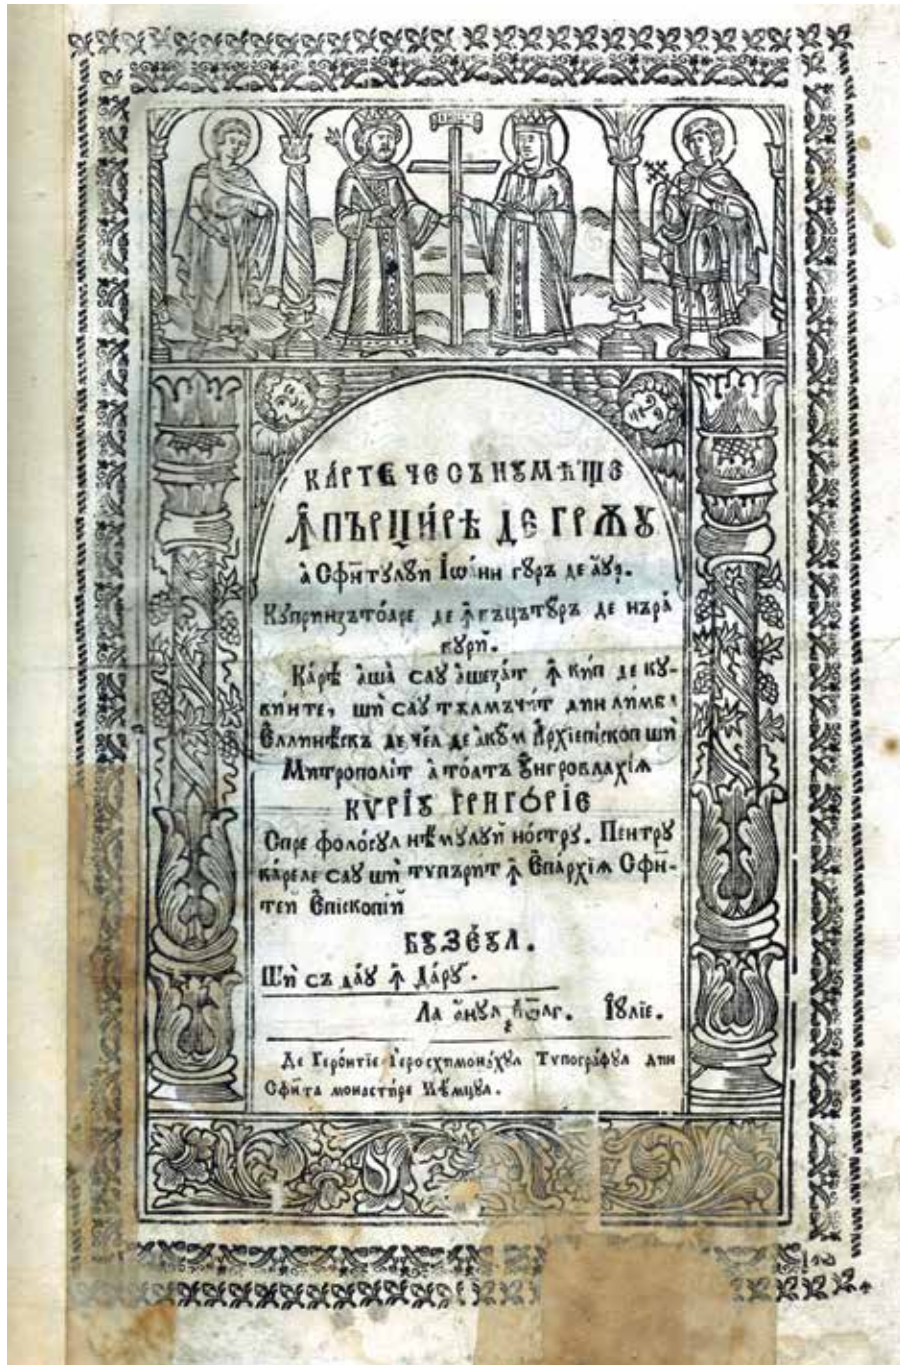 КА́РТЕ ЧЕ СЪ НꙊМѢЩЕ
Ꙟ҆ПЪРЦИ́РѢ ДЕ ГРѪꙊ
а҆ Сфн҃тꙋлꙋй Іѡа́нн гꙋрь де а҆́ꙋр.
Кꙋпринзъто́аре де ꙟ҆въцътꙋ́рь де нъра́
вꙋрй.
Ка́рѣ а҆ша̀ сaꙋ а҆шеза́т ꙟ҆ кип де кꙋ-
ви́нте, шѝ сaꙋ тълмъчи́т дин ли́мба
Є҆ллинѣ́скъ де че́л де а҆кꙋм А҆рхїепі́скоп шѝ
Митрополі́т а҆ то́атъ Ꙋ҆нгровлахі́ѧ
КѴРІꙊ ГРИГО́РІЄ
Спре фоло́сꙋл нѣ́мꙋлꙋй но́стрꙋ. Пентрꙋ
ка́реле сaꙋ шѝ тѵпъри́т ꙟ҆ Є҆па́рхїѧ Сфн҃-
тей Є҆піскопїй
БꙊЗЕ́ꙊЛ.
Шѝ съ да́ꙋ ꙟ҆ Да́рꙋ.
Ла а҆́нꙋл ҂аѡ҃лг. І҆ꙋлїе.
Де Геро́нтїе І҆еросхимона́хꙋл Тѵпогра́фꙋл дин
Сфн҃та монасти́ре Нѣ́мцꙋл.